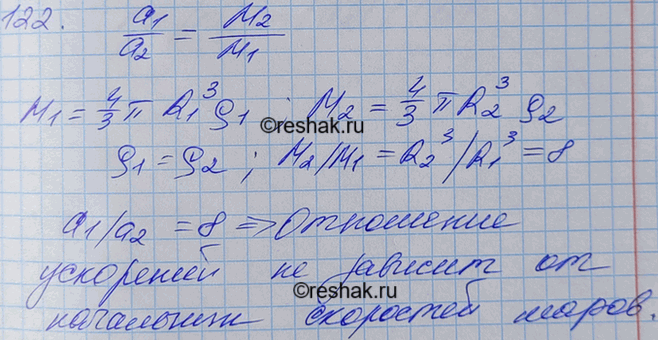 122. a₁/a₂ = M₂/M₁
M₁ = 4/3 π R₁³ ρ₁ ; M₂ = 4/3 π R₂³ ρ₂
©reshak.ru
ρ₁ = ρ₂ ; M₂/M₁ = R₂³/R₁³ = 8
a₁/a₂ = 8 => Отношение
ускорений не зависит от
©reshak.ru
начальных скоростей шаров.